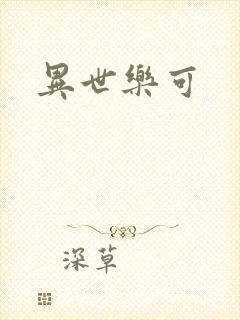 異世樂可
深草